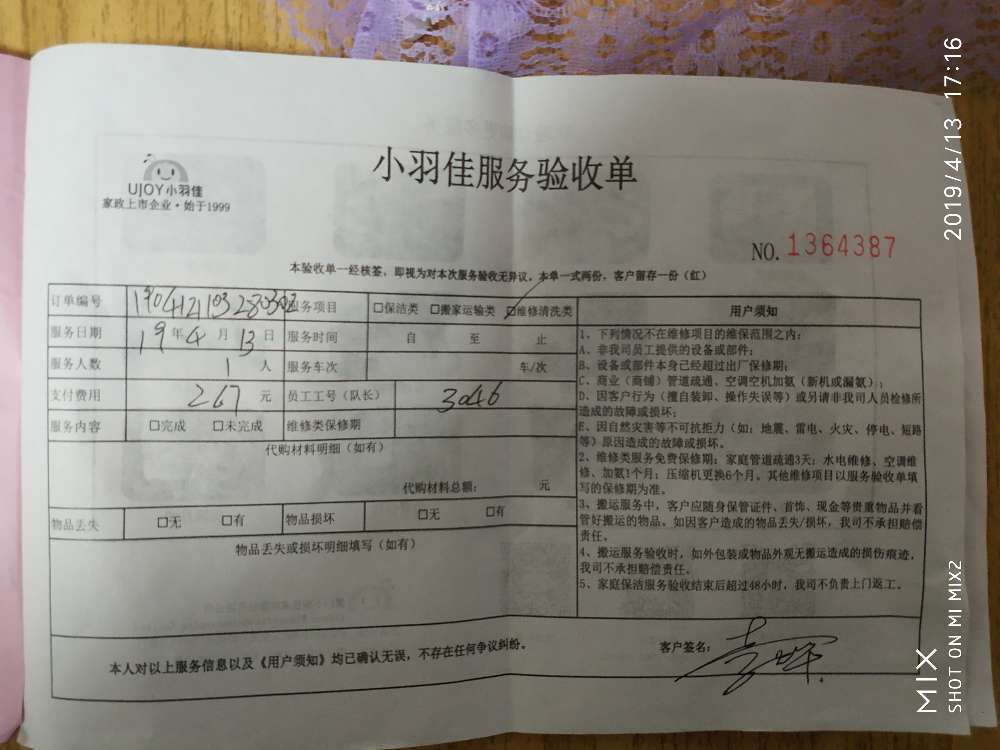 UJOY小羽佳
家政上市企业·始于1999
小羽佳服务验收单
NO. 1364387
本验收单一经核签，即视为对本次服务验收无异议，本单一式两份，客户留存一份（红）
订单编号 服务项目 □保洁类 □搬家运输类 □维修清洗类
服务日期 19年4月13日 服务时间 自 至 止
服务人数 1人 服务车次 车/次
支付费用 267元 员工工号（队长） 3046
服务内容 □完成 □未完成 维修类保修期
代购材料明细（如有）
代购材料总额： 元
物品丢失 □无 □有 物品损坏 □无 □有
物品丢失或损坏明细填写（如有）
用户须知
1、下列情况不在维修项目的维保范围之内：
A、非我司员工提供的设备或部件；
B、设备或部件本身已经超过出厂保修期；
C、商业（商铺）管道疏通、空调空机加氨（新机或漏氨）；
D、因客户行为（擅自装卸、操作失误等）或另请非我司人员检修所
造成的故障或损坏；
E、因自然灾害等不可抗拒力（如：地震、雷电、火灾、停电、短路
等）原因造成的故障或损坏。
2、维修类服务免费保修期：家庭管道疏通3天；水电维修、空调维
修、加氨1个月；压缩机更换6个月。其他维修项目以服务验收单填
写的保修期为准。
3、搬运服务中，客户应随身保管证件、首饰、现金等贵重物品并看
管好搬运的物品。如因客户造成的物品丢失/损坏，我司不承担赔偿
责任。
4、搬运服务验收时，如外包装或物品外观无搬运造成的损伤痕迹，
我司不承担赔偿责任。
5、家庭保洁服务验收结束后超过48小时，我司不负责上门返工。
本人对以上服务信息以及《用户须知》均已确认无误，不存在任何争议纠纷。
客户签名：
2019/4/13 17:16
MIX
SHOT ON MI MIX2